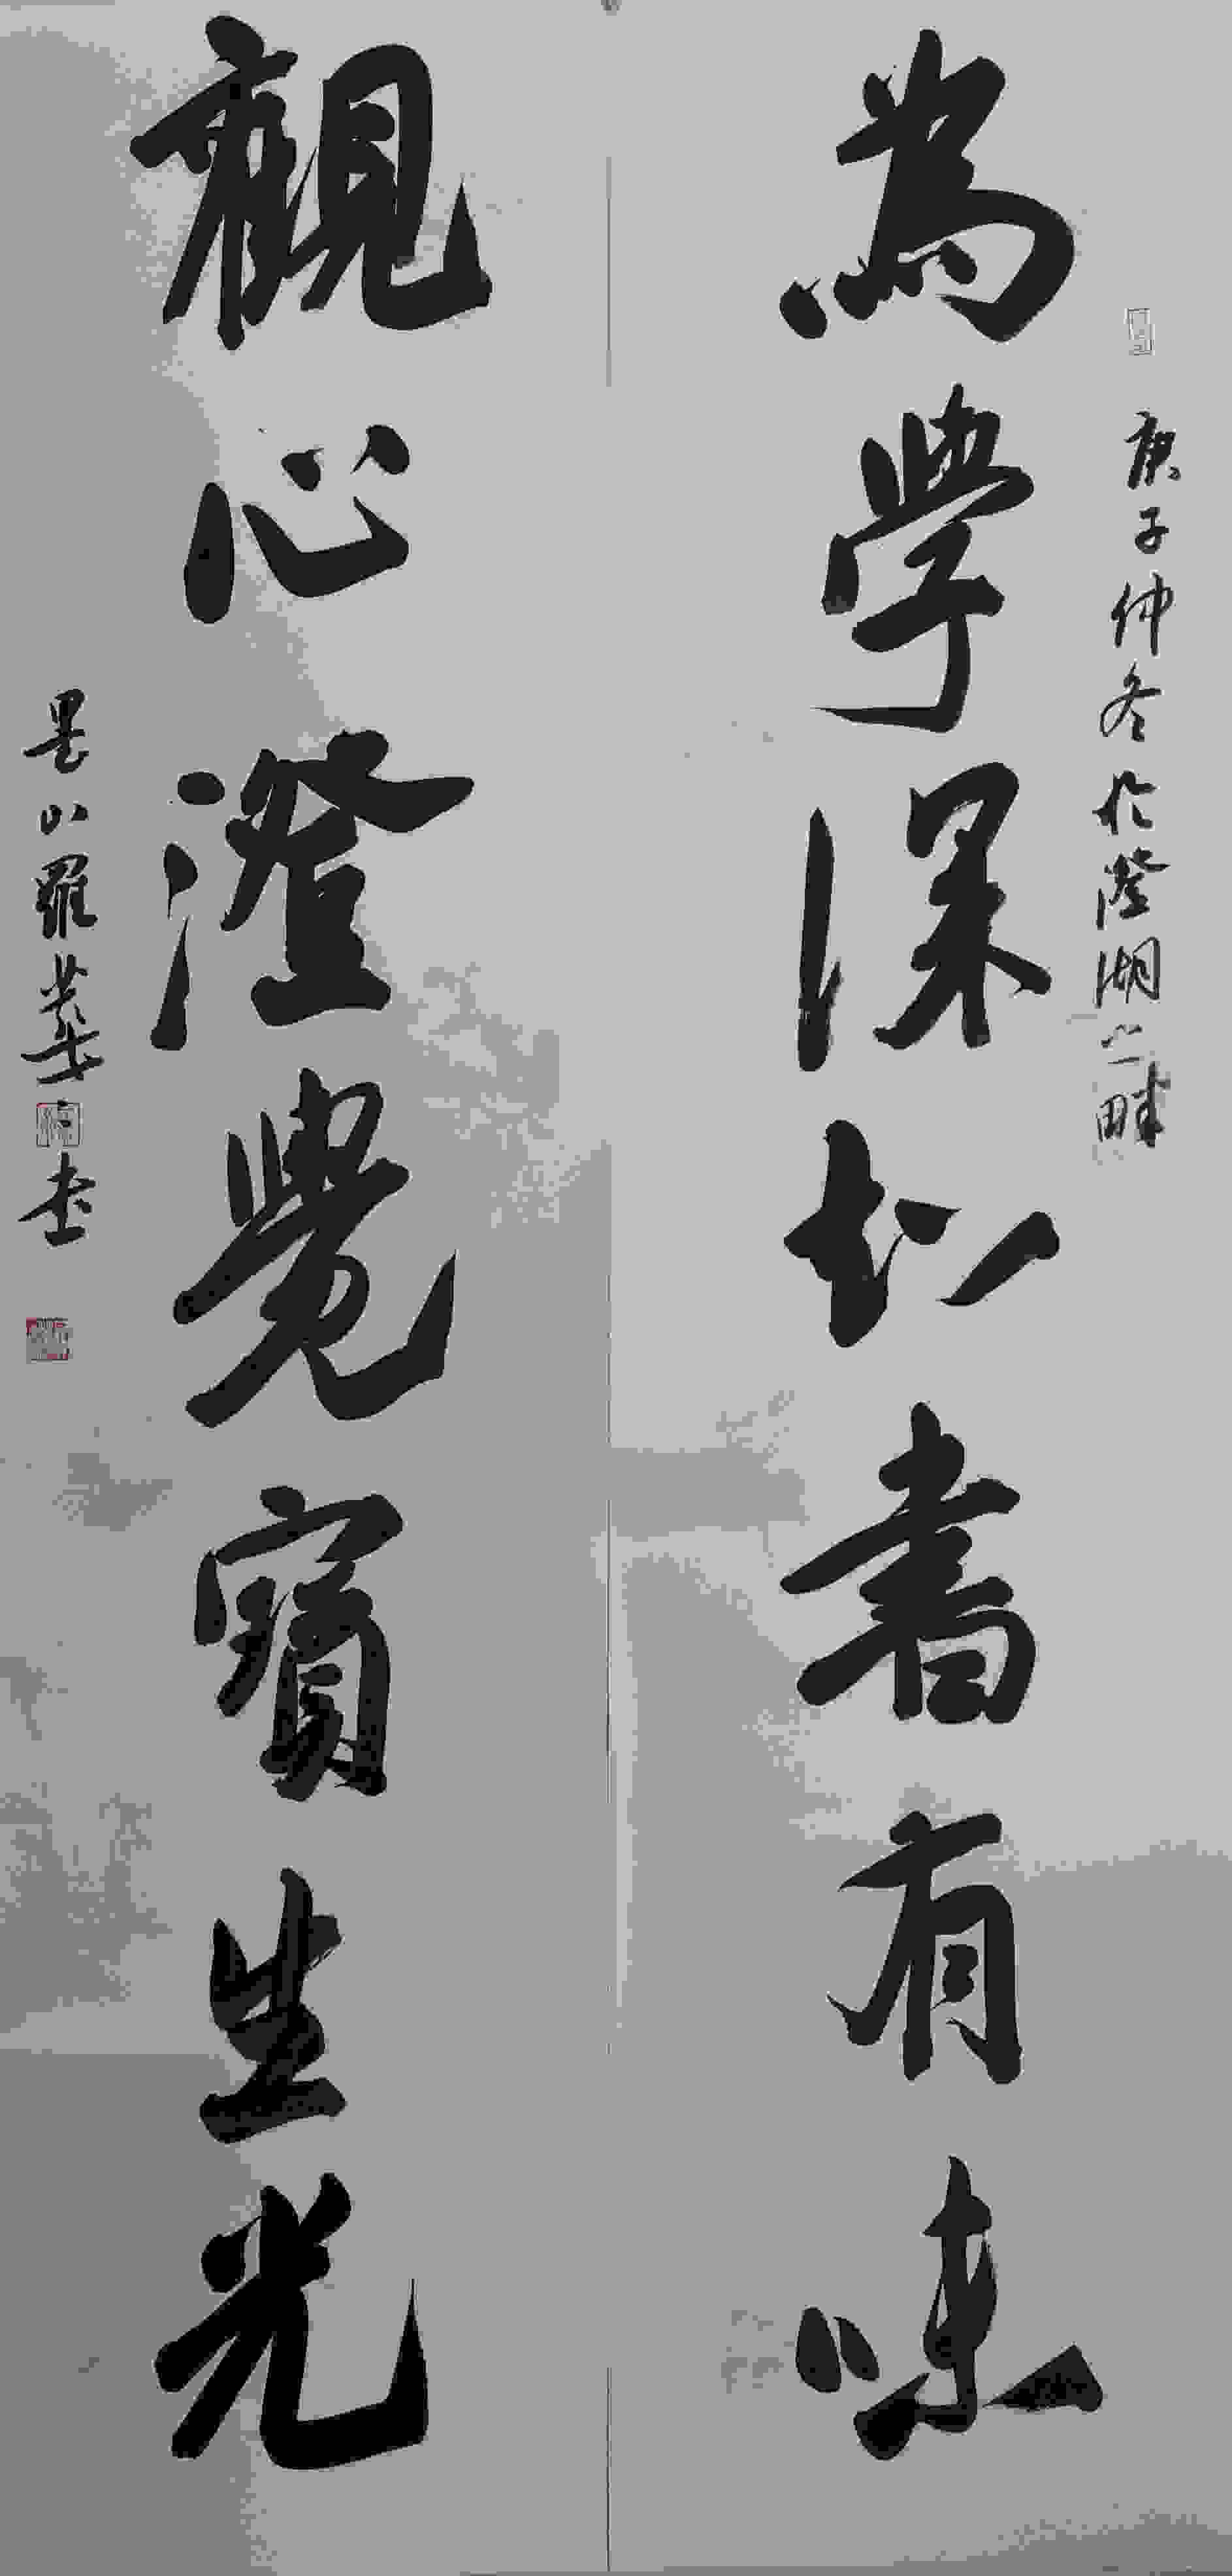 庚子仲冬於澄湖之畔
為學深知書有味
觀心澄覺寶生光
昆山羅 書